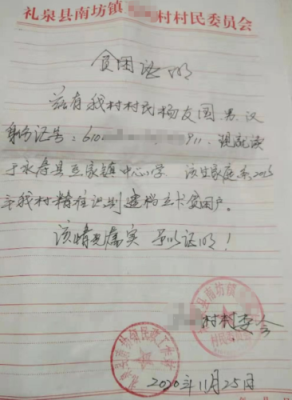 礼泉县南坊镇 村村民委员会
贫困证明
兹有我村村民杨友国 男 汉
身份证号:610 911. 现就读
于永寿县 家镇中心小学 该生家庭系2015
年我村精准识别建档立卡贫困户。
该情况属实 予以证明!
村村委会
2020年11月25日